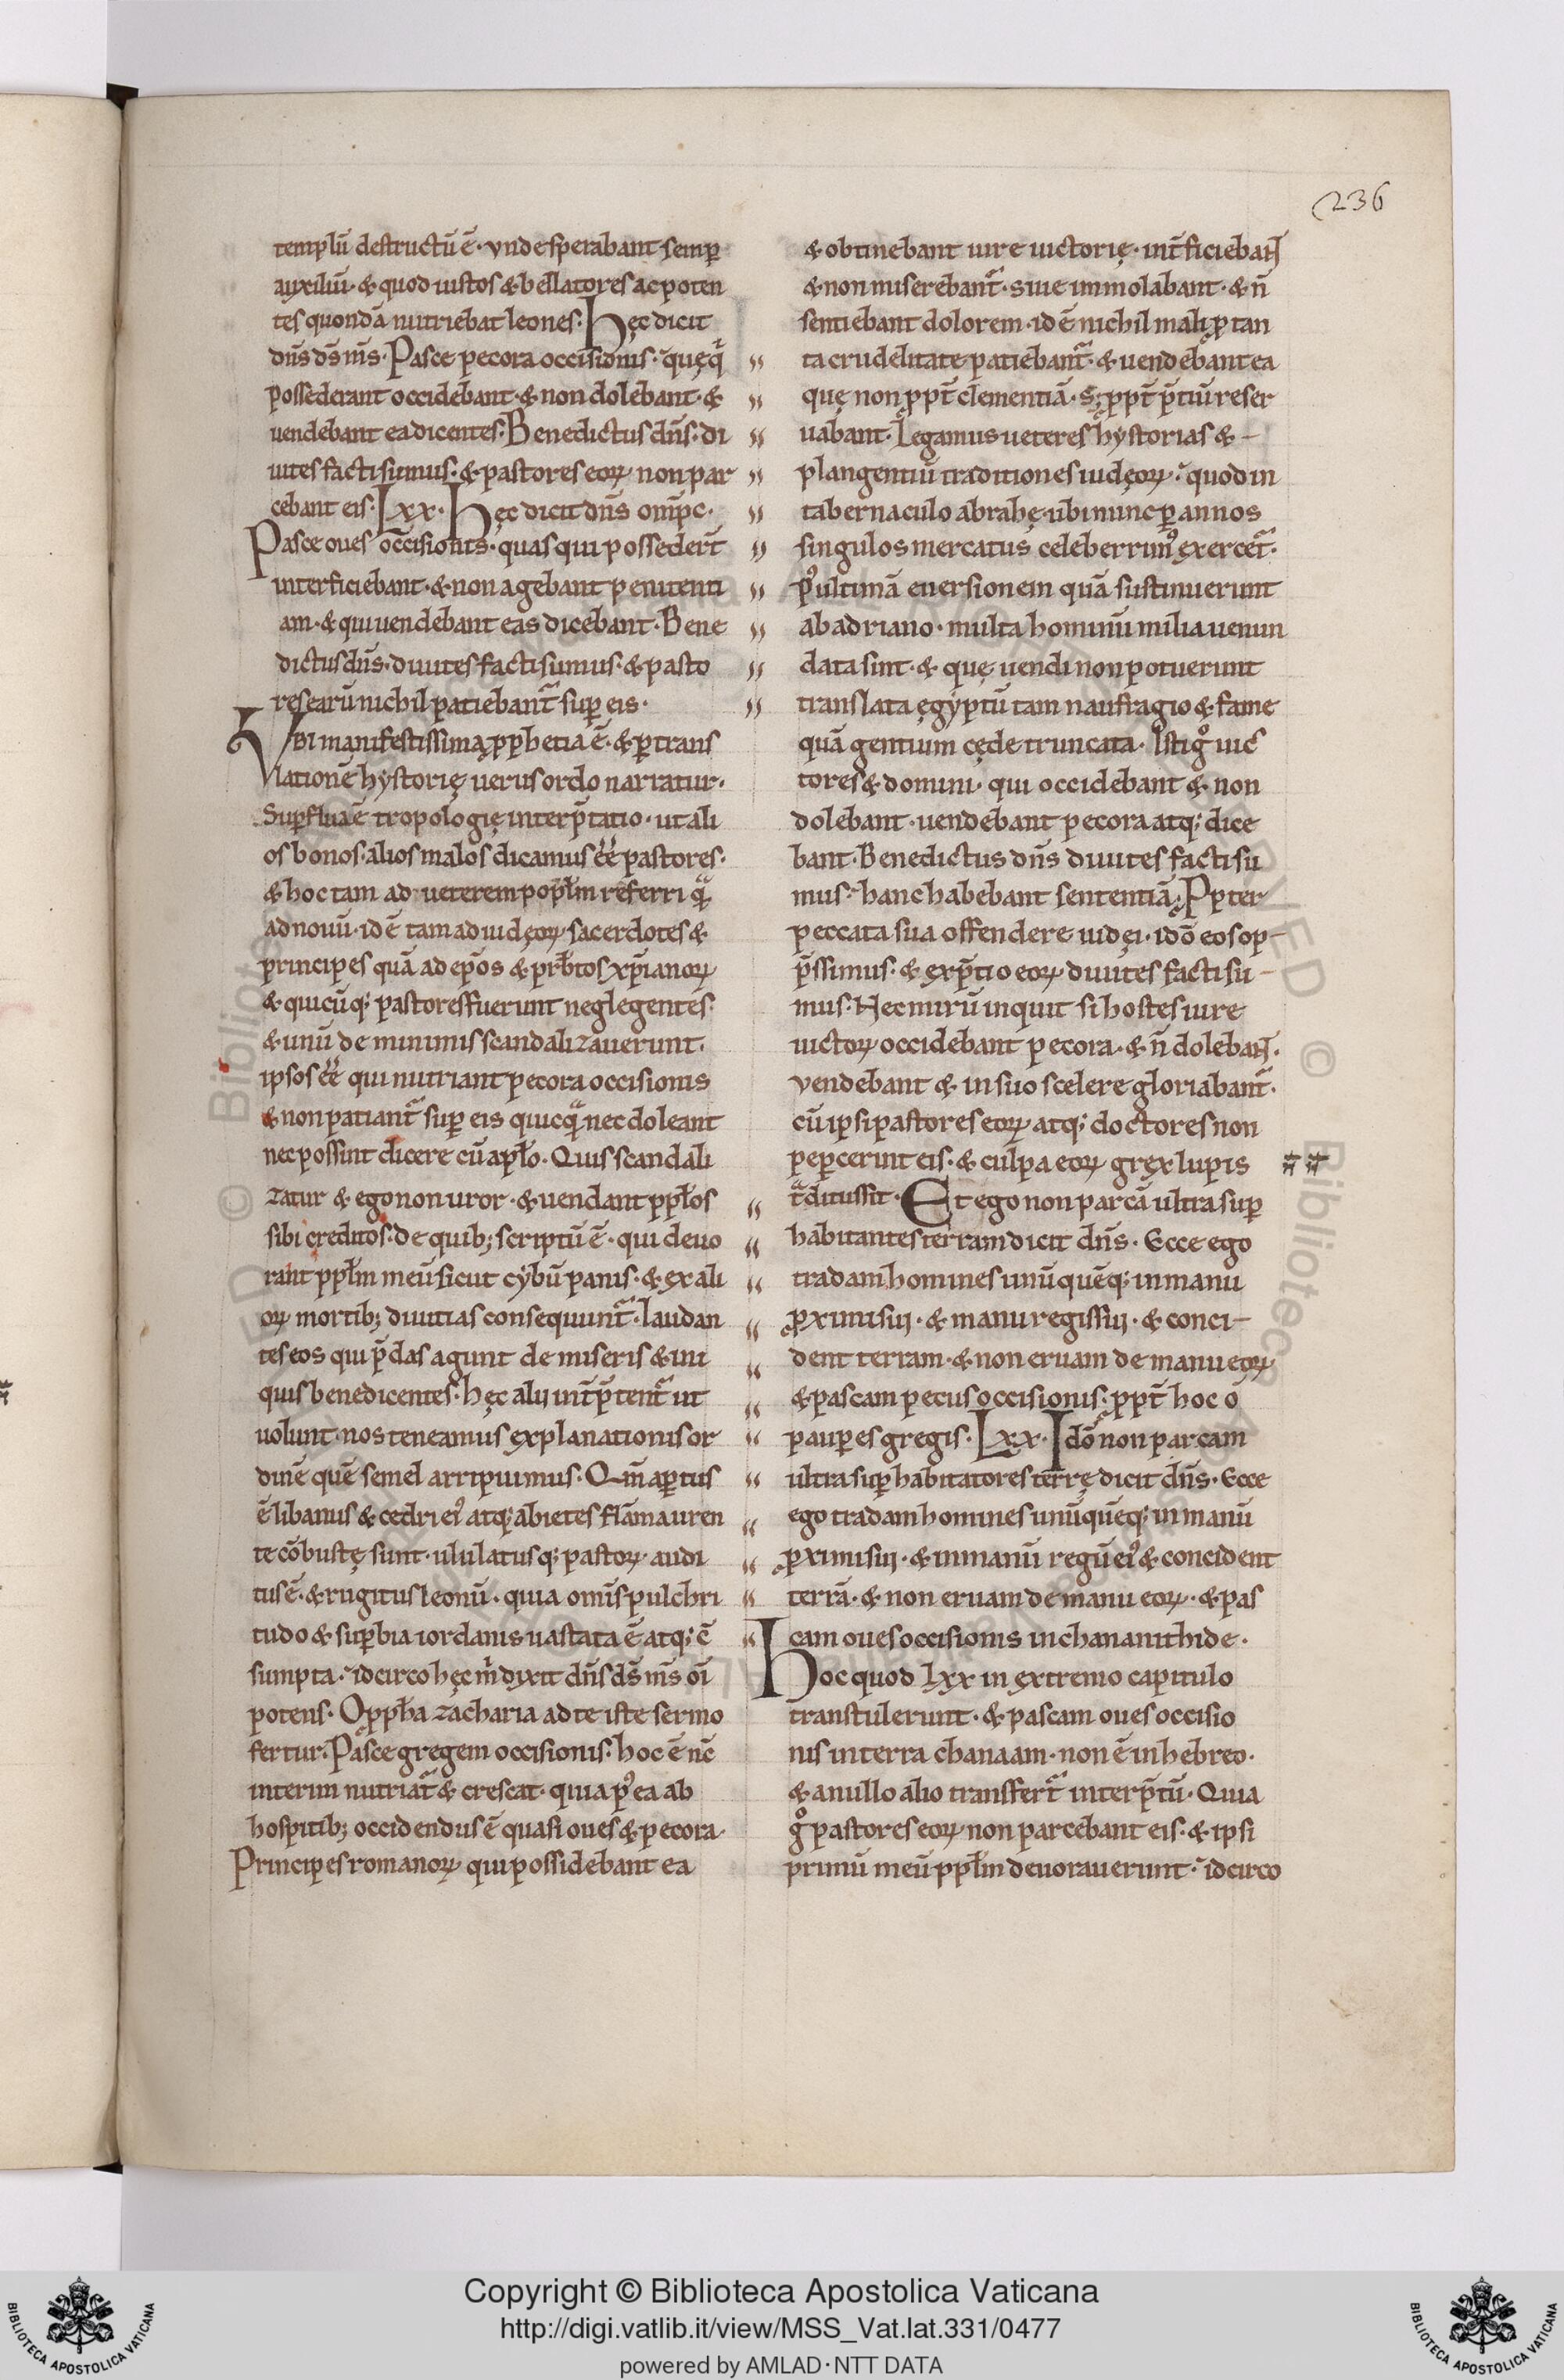 236
templū destructū ē · vnde sperabant semꝑ
auxiliū · & quod iustos & bellatores ac poten
tes quondā nutriebat leones · Hęc dicit
dn̄s ds̄ m̄s · Pasce pecora occisionis · quę q̇
possederant occidebant · & non dolebant · &
uendebant ea dicentes · Benedictus dn̄s · di
uites facti sumus · & pastores eoꝝ non par
cebant eis · Lxx · Hęc dicit dn̄s omp̄c ·
Pasce oues occisionis · quas qui possedert̄
interficiebant · & non agebant penitenti
am · & qui uendebant eas dicebant · Bene
dictus dn̄s · diuites facti sumus · & pasto
res earū nichil patiebant᷑ suꝑ eis ·
Vbi manifestissima ꝓphetia ē · & ꝑ trans
lationē hystorię uerus ordo narratur ·
Suꝑflua ē tropologię interp̄tatio · ut ali
os bonos · alios malos dicamus ēē pastores ·
& hoc tam ad ueterem popl̄m referri qͣ̄
ad nouū · id ē tam ad iudęoꝝ sacerdotes &
principes quā ad ep̄os & prb̄tos xp̄ianoꝝ
& quicūq; pastores fuerunt neglegentes ·
& unū de minimis scandalizauerunt ·
ipsos ēē qui nutriant pecora occisionis
& non patiant᷑ suꝑ eis quicqͣ̄ nec doleant
nec possint dicere cū apl̄o · Quis scandali
zatur & ego non uror · & uendant ppl̄os
sibi creditos · de quib; scriptū ē · qui deuo
rant ppl̄m meū sicut cybū panis · & ex ali
oꝝ mortib; diuitias consequunt᷑ · laudan
tes eos qui p̄das agunt de miseris & ini
quis benedicentes · hęc alij int̄p̄tent᷑ ut
uolunt · nos teneamus explanationis or
dinē quē semel arripuimus · Qm̄ aꝑtus
ē libanus & cedri eiꝰ atq; abietes flāma uren
te cōbustę sunt · ululatusq; pastoꝝ audi
tus ē · & rugitus leonū · quia omīs pulchri
tudo & suꝑbia iordanis uastata ē atq; c̄
sumpta · idcirco hęc ṁ dixit dn̄s ds̄ m̄s oī
potens · O pph̄a zacharia ad te iste sermo
fertur · Pasce gregem occisionis · hoc ē nc̄
interim nutriat᷑ & crescat · quia pꝰ ea ab
hospitib; occidendus ē quasi oues & pecora ·
Principes romanoꝝ qui possidebant ea
& obtinebant iure uictorię · int̄ficiebaɴᴛ
& non miserebant᷑ · siue immolabant · & n̄
sentiebant dolorem · id ē nichil mali ꝓ tan
ta crudelitate patiebant᷑ · & uendebant ea
quę non ꝓpt̄ clementiā · s; ꝓpt̄ p̄tiū reser
uabant · Legamus ueteres hystorias &
plangentiū traditiones iudęoꝝ · quod in
tabernaculo abrahę ubi nunc ꝑ annos
singulos mercatus celeberrimꝰ exercet᷑ ·
pꝰ ultimā euersionem quā sustinuerunt
ab adriano · multa hominū milia uenun
data sint · & quę uendi non potuerunt
translata ęgyptū tam naufragio & fame
quā gentium cęde truncata · Isti gͦ uic
tores & domini · qui occidebant & non
dolebant · uendebant pecora atq; dice
bant · Benedictus dn̄s diuites facti su
mus · hanc habebant sententiā · Ꝓpter
peccata sua offendere iudęi · idō eos op
p̄ssimus · & ex p̄tio eoꝝ diuites facti su
mus · Nec mirū inquit si hostes iure
uictoꝝ occidebant pecora · & n̄ dolebaɴᴛ ·
vendebant & in suo scelere gloriabant᷑ ·
cū ipsi pastores eoꝝ atq; doctores non
peꝑcerint eis · & culpa eoꝝ grex lupis
tͣditus sit · Et ego non parcā ultra suꝑ
habitantes terram dicit dn̄s · Ecce ego
tradam homines unū quēq; in manu
ꝓximi sui · & manu regis sui · & conci
dent terram · & non eruam de manu eoꝝ
& pascam pecus occisionis · ꝓpt̄ hoc o
pauꝑes gregis · Lxx · Idō non parcam
ultra suꝑ habitatores terrę dicit dn̄s · Ecce
ego tradam homines unū quēq; in manū
ꝓximi sui · & in manū regū eiꝰ & concident
terrā · & non eruam de manu eoꝝ · & pas
cam oues occisionis in chananithide ·
Hoc quod Lxx in extremo capitulo
transtulerunt · & pascam oues occisio
nis in terra chanaam · non ē in hebreo ·
& a nullo alio transfert᷑ interp̄tū · Quia
gͦ pastores eoꝝ non parcebant eis · & ipsi
primū meū ppl̄m deuorauerunt · idcirco
Copyright © Biblioteca Apostolica Vaticana
http://digi.vatlib.it/view/MSS_Vat.lat.331/0477
powered by AMLAD · NTT DATA
BIBLIOTECA APOSTOLICA VATICANA
BIBLIOTECA APOSTOLICA VATICANA